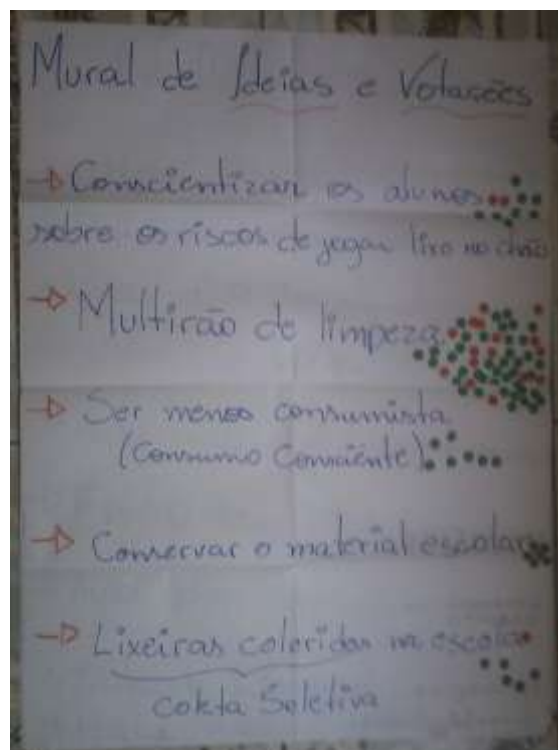 Mural de Ideias e Votações
Conscientizar os alunos
sobre os riscos de jogar lixo no chão
Multirão de limpeza
Ser menos consumista
(Consumo Consciente)
Conservar o material escolar
Lixeiras coloridas na escola
coleta Seletiva